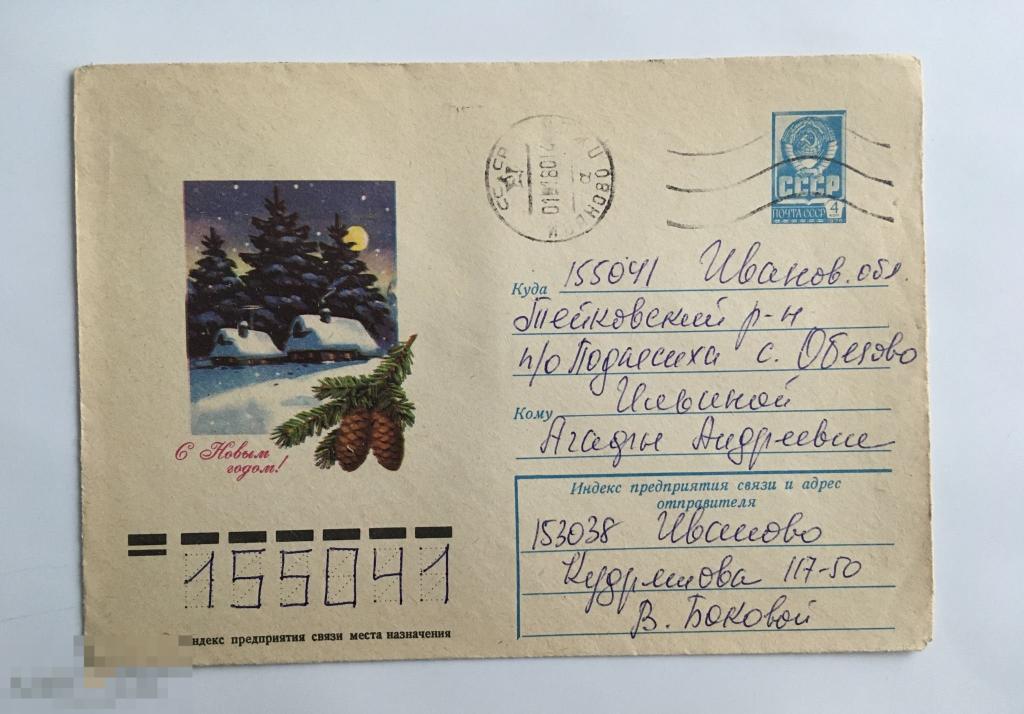 СССР
ПОЧТА СССР 4
Куда 155041 Иванов. обл.
Тейковский р-н
п/о Подлесиха с. Обезово
Кому Ильиной
Агафьи Андреевне
С Новым
годом!
Индекс предприятия связи и адрес
отправителя
153038 Иваново
Кудряшова 117-50
В. Боковой
155041
ндекс предприятия связи места назначения